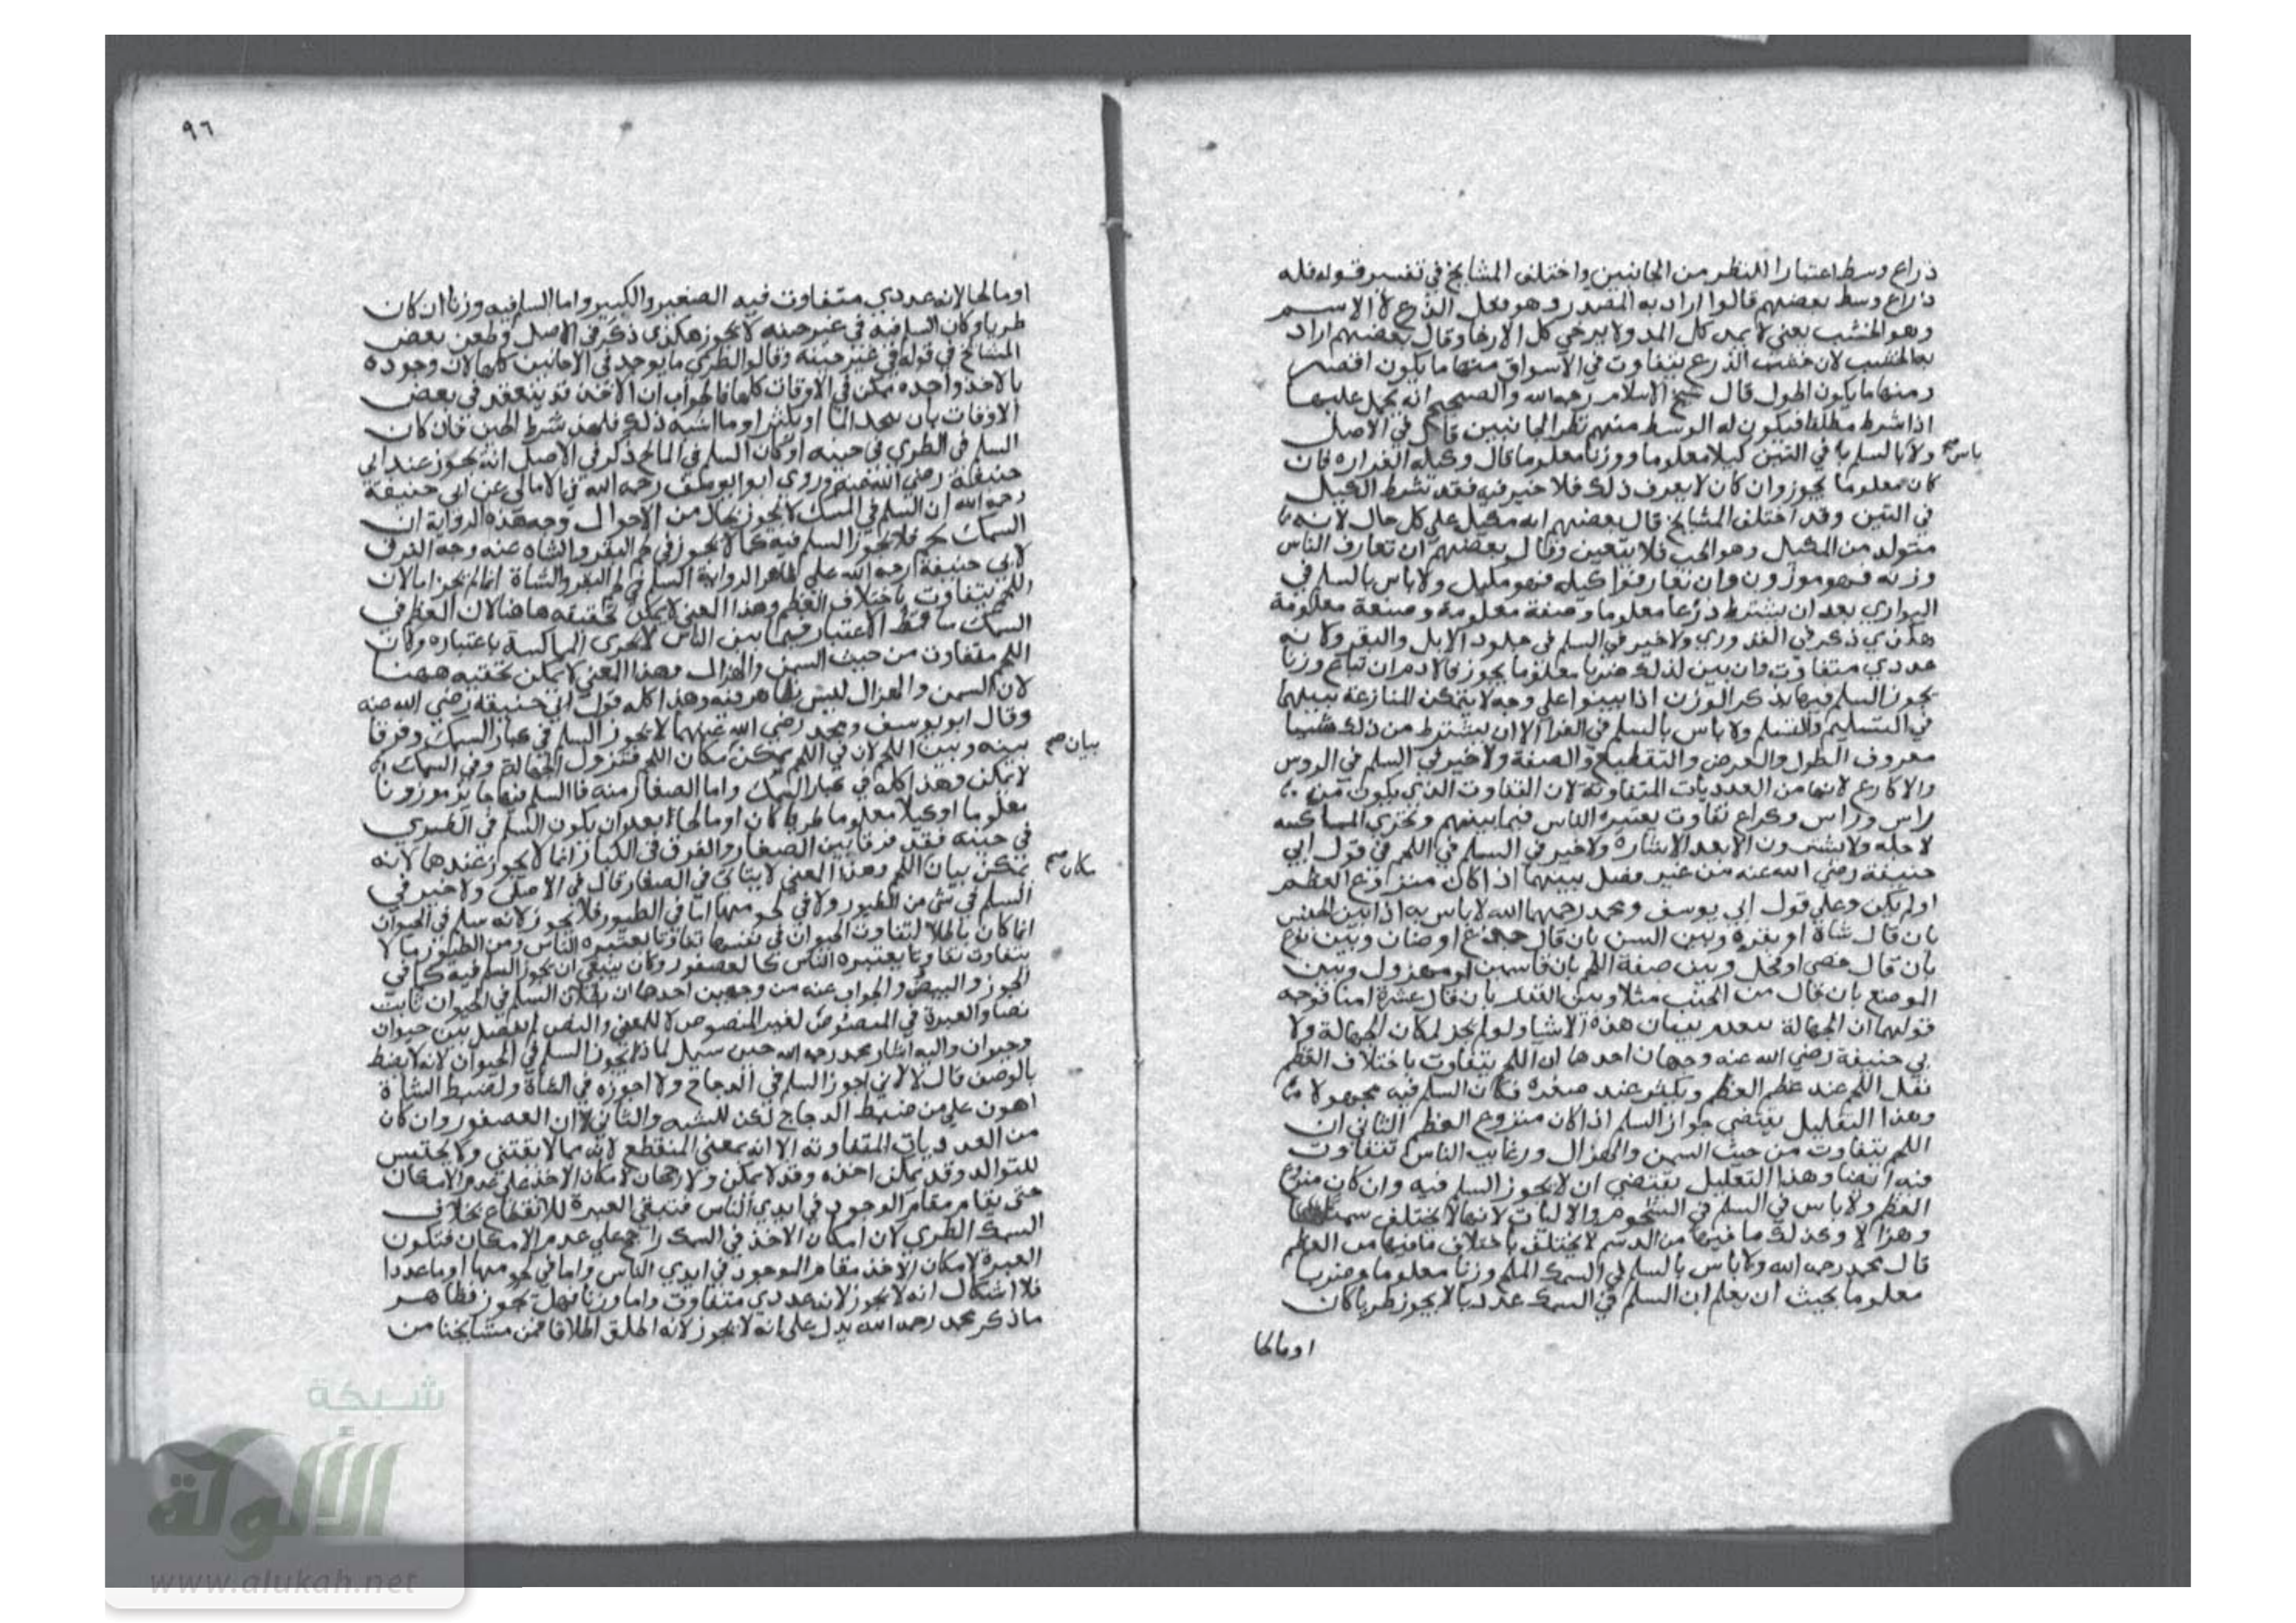 ذراع وسط اعتبارا للنظر من الجانبين واختلف المشايخ في تفسير قوله فله
ذراع وسط بعضهم قالوا اراد به المصدر وهو فعل الذرع لا الاسم
وهو الخشب يعني لا يمد كل المد ولا يرخي كل الارخا وقال بعضهم اراد
به الخشب لان خشب الذرع يتفاوت في الاسواق منها ما يكون اقصر
ومنها ما يكون اطول قال شيخ الاسلام رحمه الله والصحيح انه يحمل عليهما
اذا شرط مطلقا فيكون له الوسط منهم نظرا لجانبين قال في الاصل
باس صح
ولا بالسلم في التبن كيلا معلوما ووزنا معلوما قال وكيله الغراره فان
كان معلوما يجوز وان كان لا يعرف ذلك فلا خير فيه فقد شرط الكيل
في التبن وقد اختلف المشايخ قال بعضهم انه مكيل علي كل حال لانه
متولد من المكيل وهو الحب فلا يتعين وقال بعضهم ان تعارف الناس
وزنه فهو موزون وان تعارفوا كيله فهو مكيل ولا باس بالسلم في
البواري بعد ان يشترط ذرعا معلوما وصفة معلومة وصنعة معلومة
هكذي ذكر في القدوري ولا خير في السلم في جلود الابل والبقر ولانه
عددي متفاوت وان بين لذلك ضربا معلوما يجوز والادم ان تباع وزنا
يجوز السلم فيها بذكر الوزن اذا بينوا علي وجه لا يتمكن المنازعة بينهما
في التسليم والتسلم ولا باس بالسلم في الفرا الا ان يشترط من ذلك شيئا
معروف الطول والعرض والتقطيع والصفة ولا خير في السلم في الروس
والاكارع لانها من العدديات المتفاوته لان التفاوت الذي يكون من
راس وراس وكراع تفاوت يعتبره الناس فيما بينهم وتجري المماكسه
لاجله ولا يشترون الا بعد الاشاره ولا خير في السلم في اللحم في قول ابي
حنيفة رضي الله عنه من غير فصل بينهما اذا كان منزوع العظم
اولم يكن وعلي قول ابي يوسف ومحمد رحمهما الله لا باس به اذا بين الجنس
بان قال شاة او بقره وبين السن بان قال جذع او ضان وبين نوع
بان قال خصي او فحل وبين صفة اللحم بان قا سمين او مهزول وبين
الموضع بان قال من الجنب مثلا وبين القدر بان قال عشرة امنا فوجه
قولهما ان الجهالة تنعدم ببيان هذه الاشيا ولو لم يجز لمكان الجهالة ولا
بي حنيفة رضي الله عنه وجهان احدها ان اللحم يتفاوت باختلاف العظم
نقل اللحم عند عظم العظم ويكثر عند صغره فكان السلم فيه مجهولا
وهذا التعليل يقتضي جواز السلم اذا كان منزوع العظم الثاني ان
اللحم يتفاوت من حيث السمن والهزال ورغايب الناس تتفاوت
فيه ايضا وهذا التعليل يقتضي ان لا يجوز السلم فيه وان كان منزوع
العظم ولا باس في السلم في الشحوم والاليات لانها لا يختلف سمنا
وهزالا وكذلك ما فيها من الدسم لا يختلف باختلاف ما فيها من العظم
قال محمد رحمه الله ولا باس بالسلم في السمك الملح وزنا معلوما وضربا
معلوما يجيث ان يعلم ان السلم في السمك عدديا لا يجوز طريا كان
او مالحا
٩٦
او مالحا لانه عددي متفاوت فيه الصغير والكبير واما السلم فيه وزنا ان كان
طريا وكان السلم فيه في غير حينه لا يجوز هكذي ذكر في الاصل وطعن بعض
المشائخ في قوله في غير حينه وقالوا الطري ما يوجد في الاحايين كلها لان وجوده
بالاخذ واخذه ممكن في الاوقات كلها فالجواب ان الاخذ قد ينعقد في بعض
الاوقات بان يجمد الما او يكثر او ما اشبه ذلك فلهذا شرط الحين فان كان
السلم في الطري في حينه او كان السلم في المالح ذكر في الاصل انه يجوز عند ابي
حنيفة رضي الله عنه وروي ابو يوسف رحمه الله في الامالي عن ابي حنيفة
رحمه الله ان السلم في السمك لا يجوز بحال من الاحوال وجه هذه الرواية ان
السمك لحم فلا يجوز السلم فيه كما لا يجوز في لحم البقر والشاه عنه وجه الفرق
لابي حنيفة رحمه الله علي ظاهر الرواية السلم في لحم البقر والشاة انما لم يجز اما لان
اللحم يتفاوت باختلاف العظم وهذا المعني لا يمكن تحقيقه هاهنا لان العظم في
السمك ساقط الاعتبار فيما بين الناس لا تجري المماكسة باعتباره وكان
اللحم متفاوت من حيث السمن والهزال وهذا المعني لا يمكن تحققه ههنا
لان السمن والهزال ليس بظاهر فيه وهذا كله قول ابي حنيفة رضي الله عنه
وقال ابو يوسف ومحمد رضي الله عنهما لا يجوز السلم في كبار السمك وفرقا
بيان صح
بينه وبين اللحم لان في اللحم يمكن مكان اللحم فتزول الجهالة وفي السمك
لا يمكن وهذا كله في كبار السمك واما الصغار منه فالسلم فيها جايز موزونا
معلوما او كيلا معلوما طريا كان او مالحا بعد ان يكون السلم في الطري
في حينه فقد فرقا بين الصغار والفرق في الكبار انما لا يجوز عندهما لانه
مكان صح
يمكن بيان اللحم وهذا المعني لا يتاتي في الصغار قال في الاصل ولا خير في
السلم في شي من الطيور ولا في لحومها اما في الطيور فلا يجوز لانه سلم في الحيوان
انما كان باطلا لتفاوت الحيوان في نفسها تفاوتا يعتبره الناس ومن الطيور ما لا
يتفاوت تفاوتا يعتبره الناس كالعصفور وكان ينبغي ان يجوز السلم فيه كما في
الجوز والبيض والجواب عنه من وجهين احدها ان بطلان السلم في الحيوان ثابت
نصا والعبرة في المنصوص لغير المنصوص لا للمعني والنص لم يفصل بين حيوان
وحيوان واليه اشار محمد رحمه الله حين سيل لماذا لا يجوز السلم في الحيوان لانه لا يضبط
بالوصف قال لا لاني اجوز السلم في الدجاج ولا اجوزه في الشاة ولضبط الشاة
اهون علي من ضبط الدجاج لكن للشبه والثاني ان العصفور وان كان
من العدديات المتفاوته الا انه بمعني المنقطع لانه مما لا يقتني ولا يحتبس
للتوالد وقد يمكن اخذه وقد لا يمكن ولا رجحان لامكان الاخذ علي عدم الامكان
حتي يقام مقام الوجود في ايدي الناس فتبقي العبرة للانقطاع بخلاف
السمك الطري لان امكان الاخذ في السمك راجح علي عدم الامكان فتكون
العبرة لامكان الاخذ مقام الموجود في ايدي الناس واما في لحومها اوما عددا
فلا اشكال انه لا يجوز لانه عددي متفاوت واما وزنا فهل يجوز فظاهر
ما ذكر محمد رحمه الله يدل علي انه لا يجوز لانه اطلق اطلاقا فمن مشايخنا من
شبكة
الألوكة
www.alukah.net